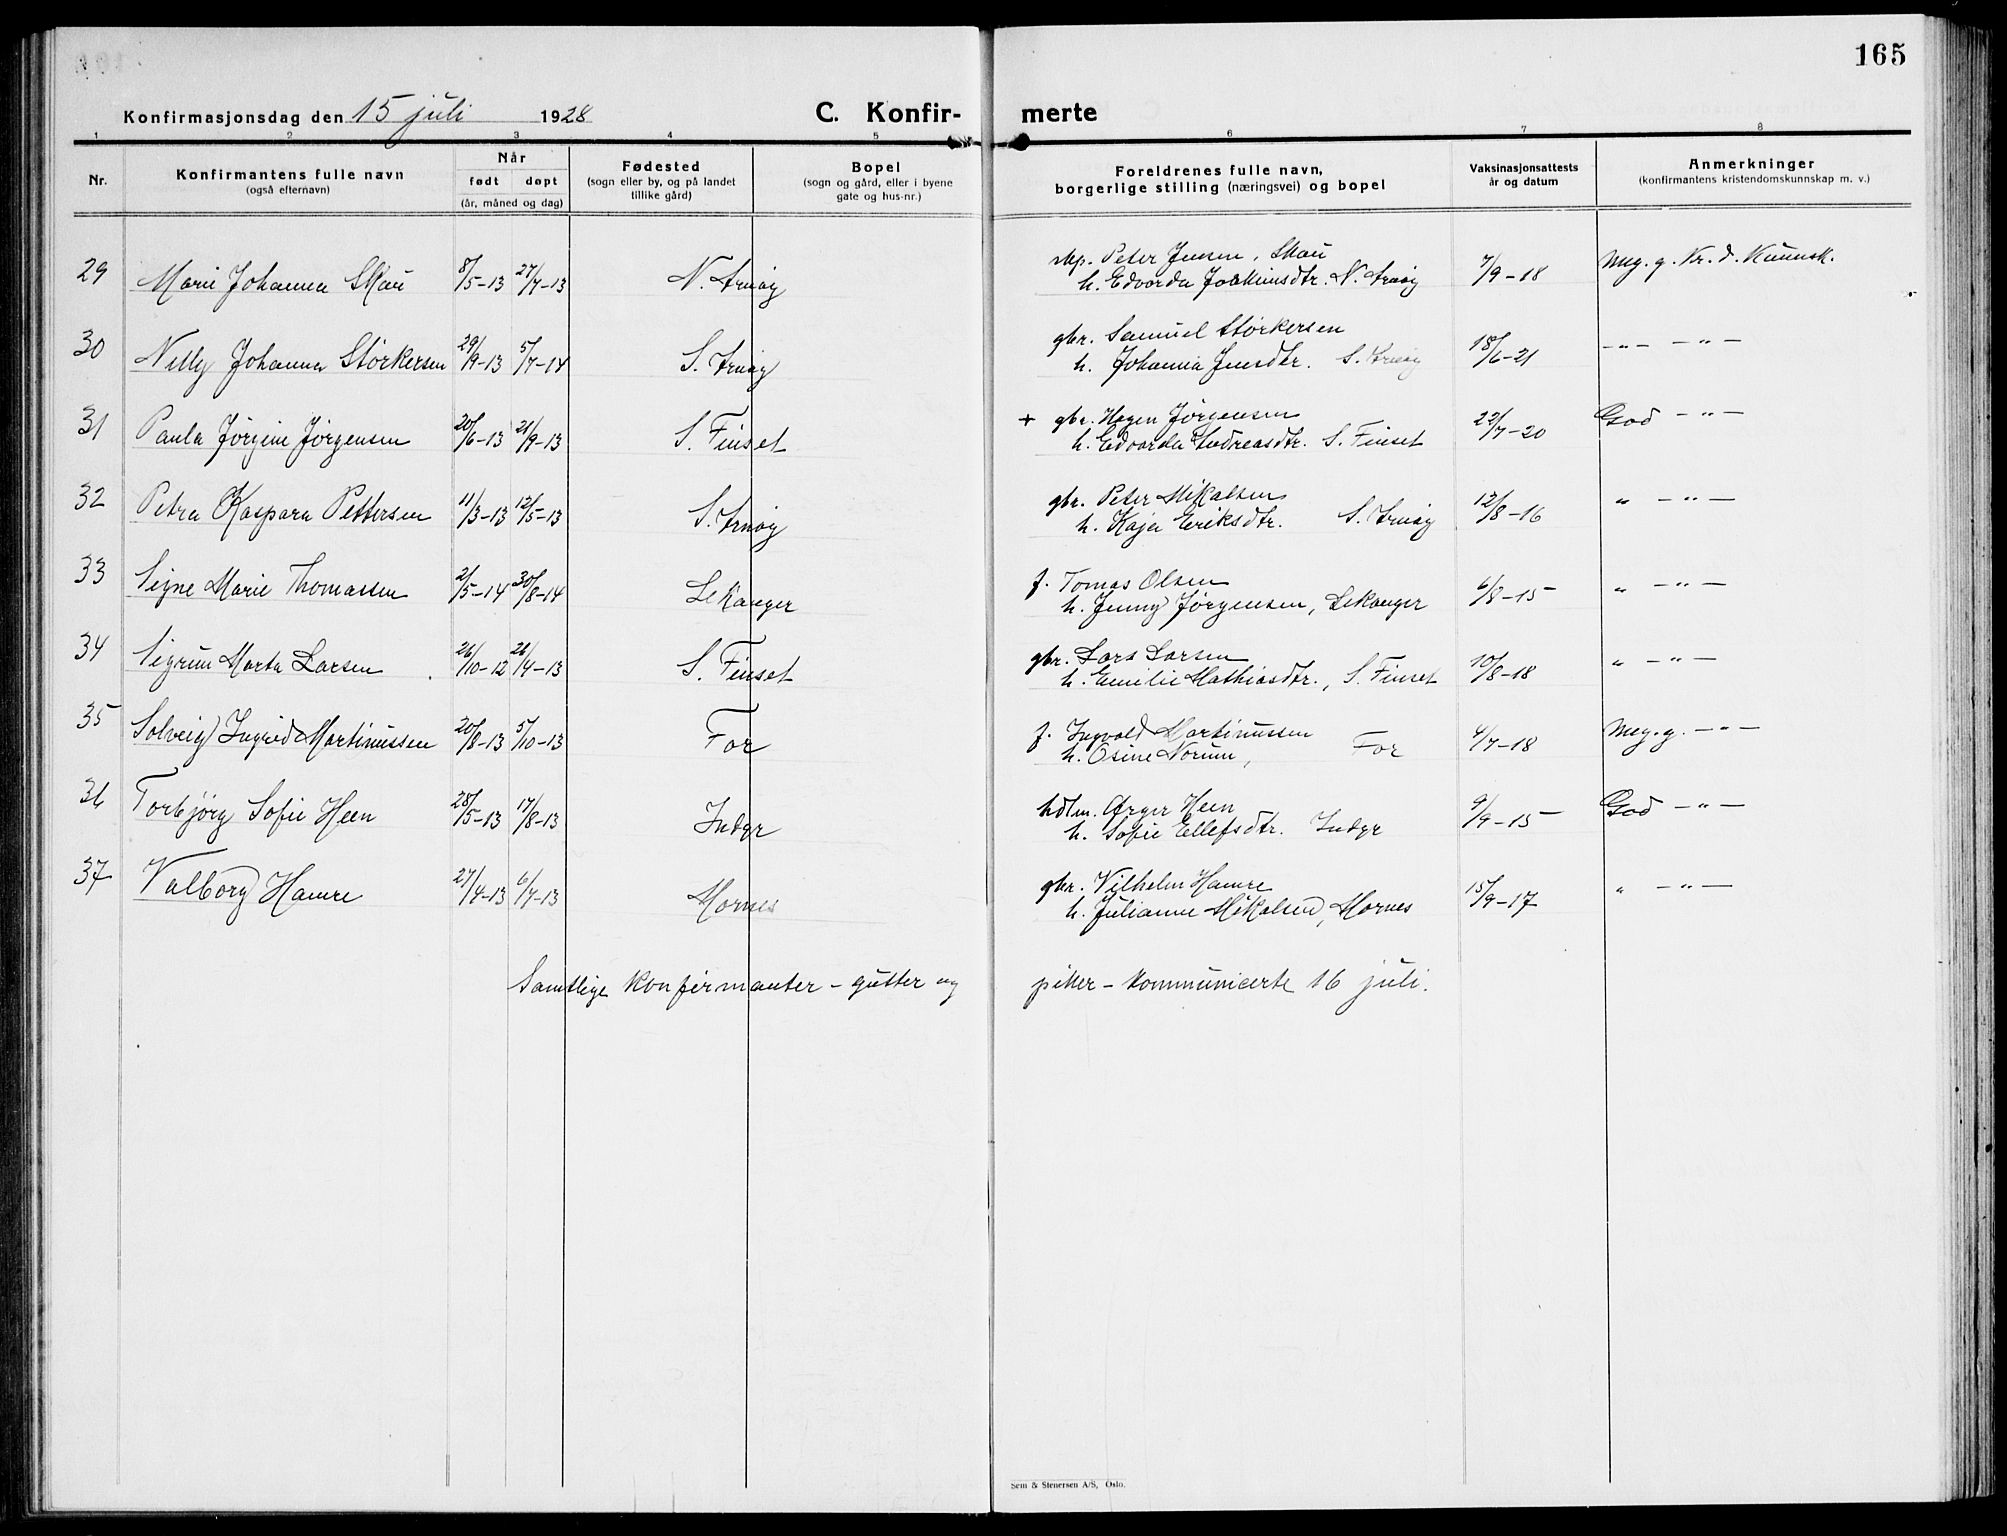 165
Konfirmasjonsdag den 15 juli 1928 C. Konfir- merte
1 2 3 4 5 6 7 8
Nr. Konfirmantens fulle navn (også efternavn) Når født døpt (år, måned og dag) Fødested (sogn eller by, og på landet tillike gård) Bopel (sogn og gård, eller i byene gate og hus-nr.) Foreldrenes fulle navn, borgerlige stilling (næringsvei) og bopel Vaksinasjonsattests år og datum Anmerkninger (konfirmantens kristendomskunnskap m. v.)
29 Marie Johanna Skau 8/5-13 27/7-13 N. Arnøy Peter Jensen, Skau 7/9-18 Meg. g. Kr. d. Kunnsk.
h. Edvarda Joakimsdtr. N. Arnøy
30 Nelly Johanna Störkersen 29/9-13 5/7-14 S. Arnøy gbr. Samuel Störkersen 18/6-21 -"- -"-
h. Johanna Jensdtr. S. Arnøy
31 Paula Jörgine Jörgensen 20/6-13 21/9-13 S. Finset + gbr. Hagen Jörgensen 22/7-20 God -"-
h. Edvarda Andreasdtr. S. Finset
32 Petra Kaspara Pettersen 11/3-13 12/5-13 S. Arnøy gbr. Peter Mikalsen 12/8-16 " -"-
h. Kaja Eriksdtr. S. Arnøy
33 Signe Marie Thomassen 2/5-14 30/8-14 Lekanger f. Tomas Olsen 6/8-15 " -"-
h. Jenny Jörgensen, Lekanger
34 Sigrun Marta Larsen 26/10-12 28/4-13 S. Finset gbr. Lars Larsen 10/8-18 " -"-
h. Emilie Mathiasdtr., S. Finset
35 Solveig Ingrid Martinussen 20/8-13 5/10-13 For f. Ingvald Martinussen 4/7-18 Meg. g. -"-
h. Osine Norum, For
36 Torbjörg Sofie Heen 28/5-13 17/8-13 Indyr hdlm. Heen 9/9-15 God -"-
h. Sofie Ellefsdtr. Indyr
37 Valborg Hamre 27/4-13 6/7-13 Mornes gbr. Vilhelm Hamre 15/9-17 " -"-
h. Julianne Mikalsen, Mornes
Samtlige konfirmanter - gutter og piker - kommunicerte 16 juli.
Sem & Stenersen A/S, Oslo.